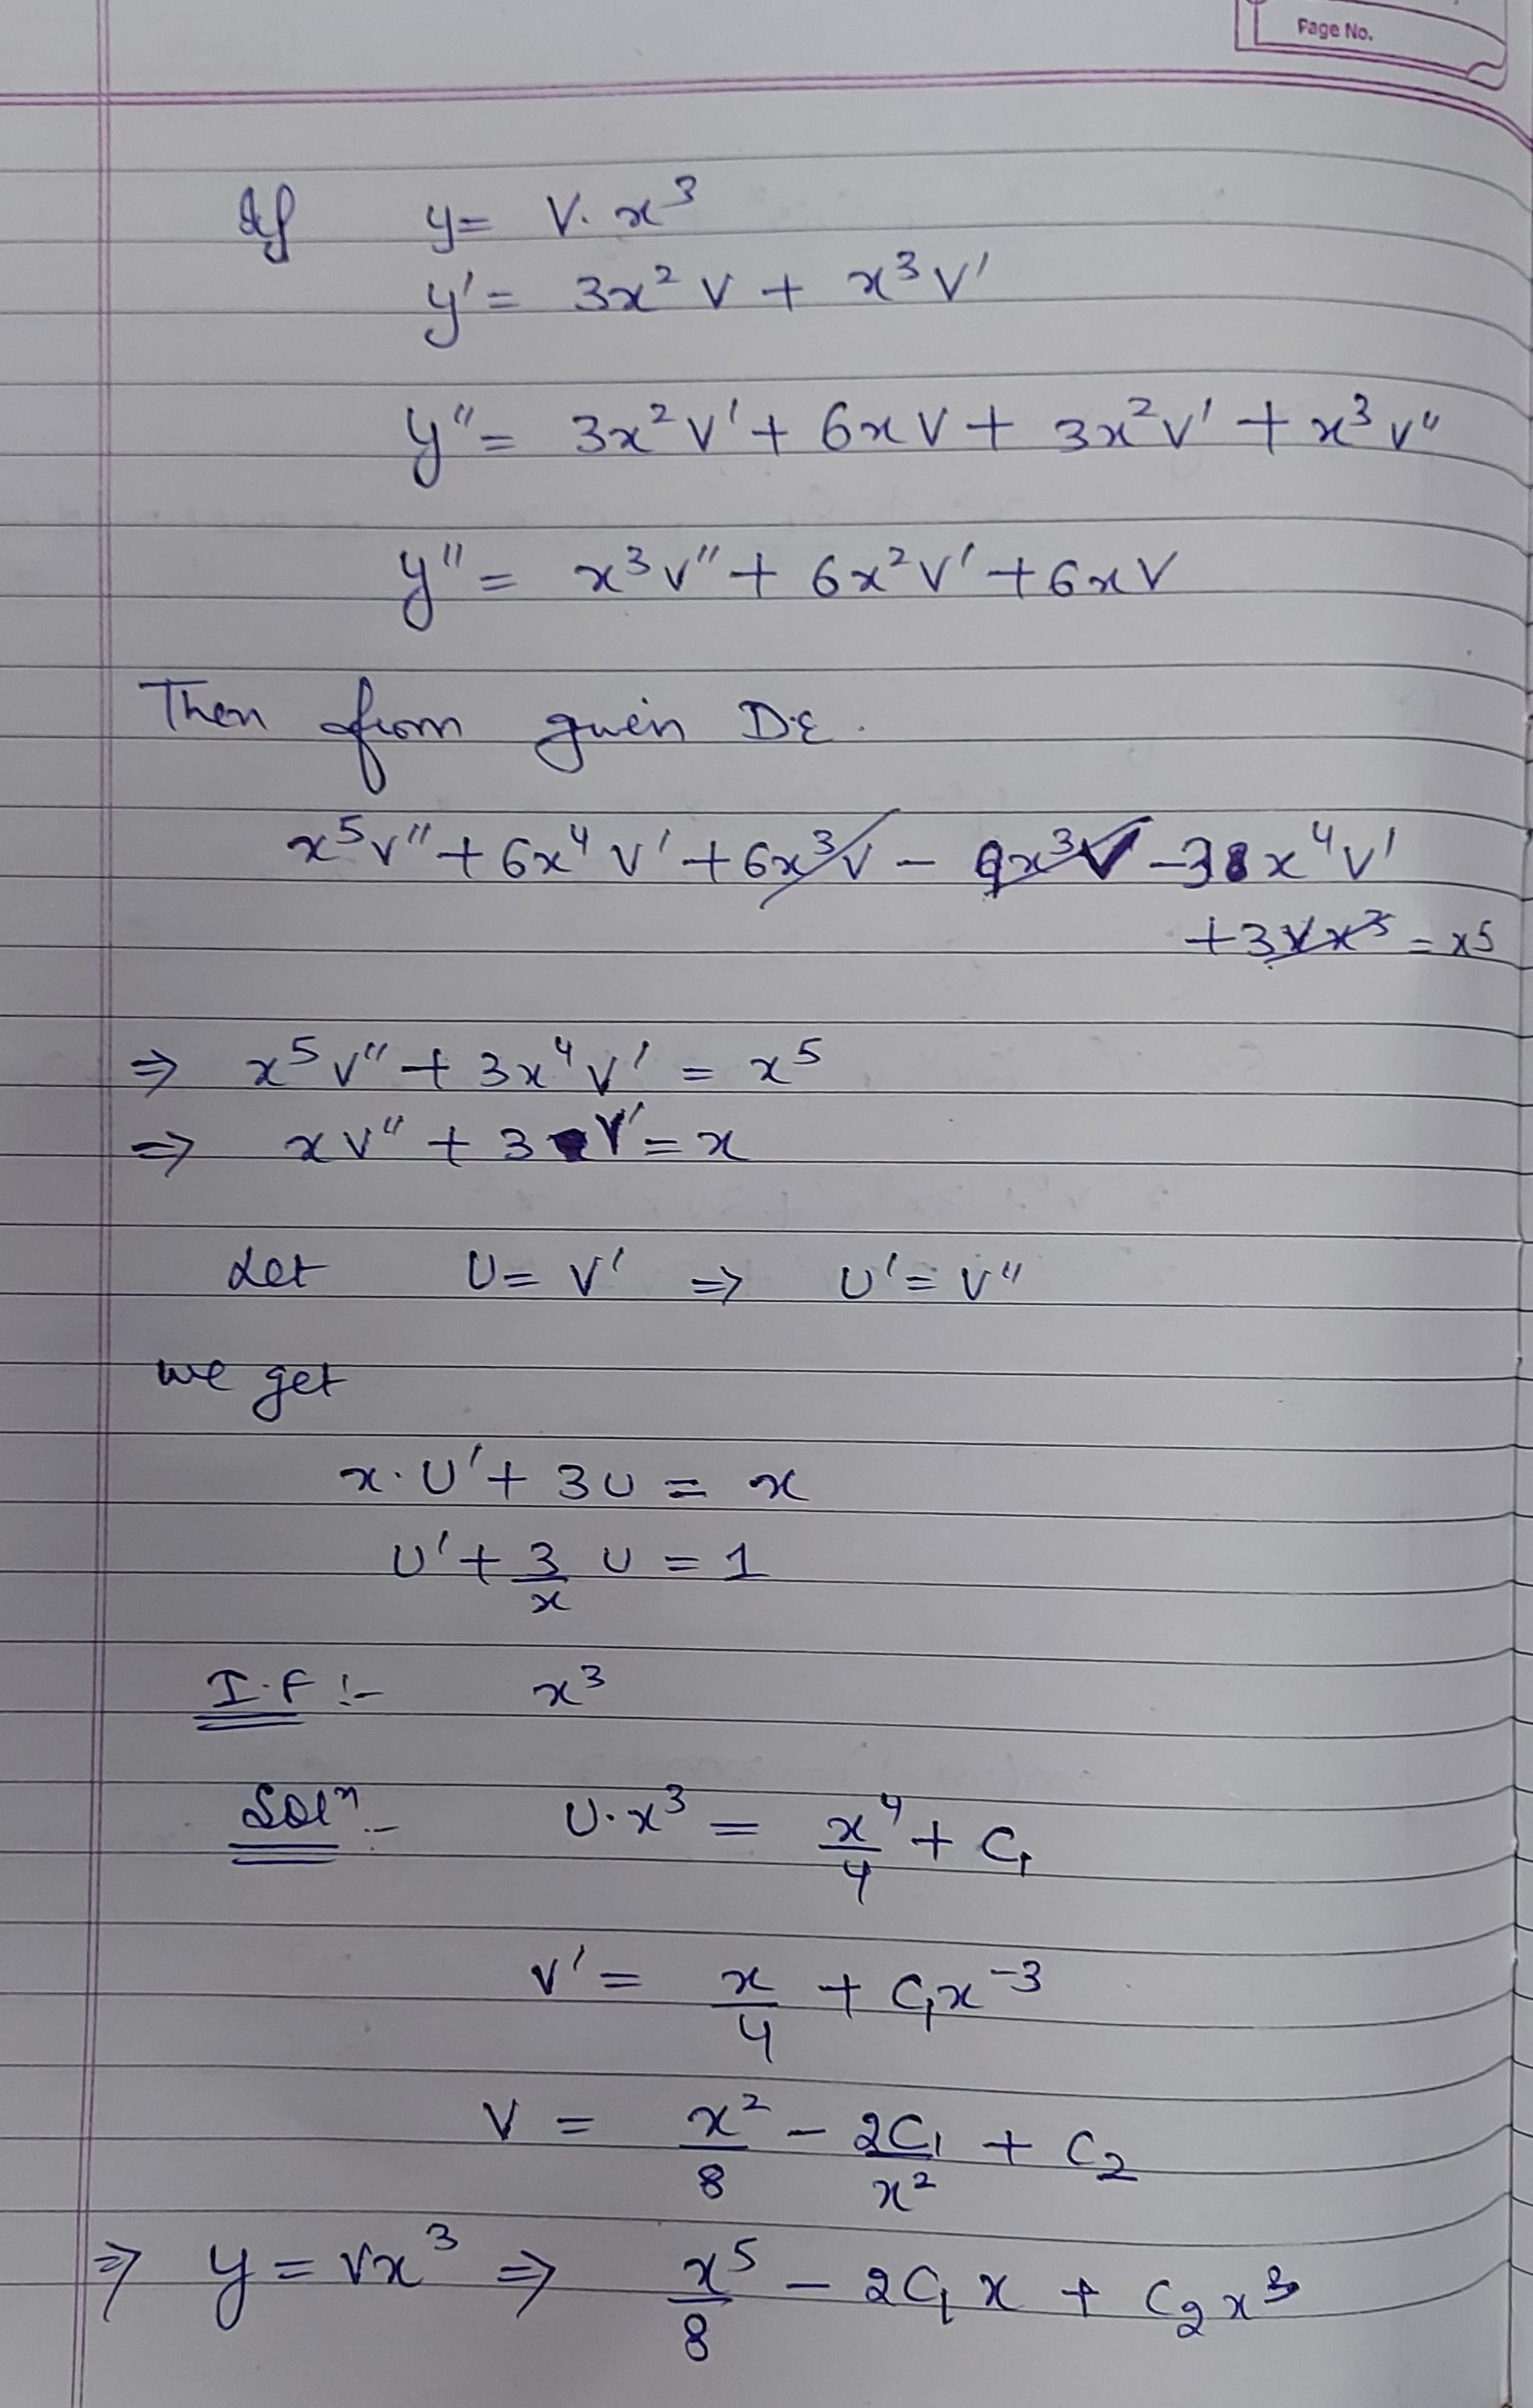 Page No.
If y = V. x³
y' = 3x² V + x³ V'
y'' = 3x² V' + 6x V + 3x² V' + x³ V''
y'' = x³ V'' + 6x² V' + 6x V
Then from given D.E.
x⁵ V'' + 6x⁴ V' + 6x³ V - 9x³ V - 3 x⁴ V'
+ 3 V x³ = x⁵
⇒ x⁵ V'' + 3x⁴ V' = x⁵
⇒ x V'' + 3 V' = x
Let U = V' ⇒ U' = V''
we get
x. U' + 3 U = x
U' + 3/x U = 1
I.F :- x³
Solⁿ :- U. x³ = x⁴/4 + C₁
V' = x/4 + C₁x⁻³
V = x²/8 - 2C₁/x² + C₂
⇒ y = Vx³ ⇒ x⁵/8 - 2C₁ x + C₂ x³